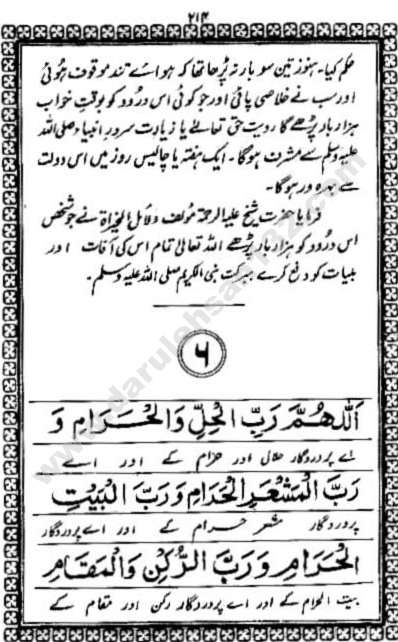 ۲۱۴
حکم کیا۔ ہنوز تین سو بار نہ پڑھا تھا کہ ہوائے تند موقوف ہوئی
اور سب نے خلاصی پائی اور جو کوئی اس درود کو بوقتِ خواب
ہزار بار پڑھے گا رویت حق تعالےٰ یا زیارت سرور انبیاء صلی اللہ
علیہ وسلم سے مشرف ہوگا۔ ایک ہفتہ یا چالیس روز میں اس دولت
سے بہرہ ور ہوگا۔
فرمایا حضرت شیخ علیہ الرحمۃ مؤلف دلائل الخیرات نے جو شخص
اس درود کو ہزار بار پڑھے اللہ تعالیٰ تمام اس کی آفات اور
بلیات کو دفع کرے ببرکت نبی الکریم صلی اللہ علیہ وسلم۔
۶
اَللّٰهُمَّ رَبِّ الْحِلِّ وَالْحَرَامِ وَ
اے پروردگار حلال اور حرام کے اور اے
رَبَّ الْمَشْعَرِ الْحَرَامِ وَرَبَّ الْبَيْتِ
پروردگار مشعر حرام کے اور اے پروردگار
الْحَرَامِ وَرَبَّ الرُّكْنِ وَالْمَقَامِ
بیت الحرام کے اور اے پروردگار رکن اور مقام کے